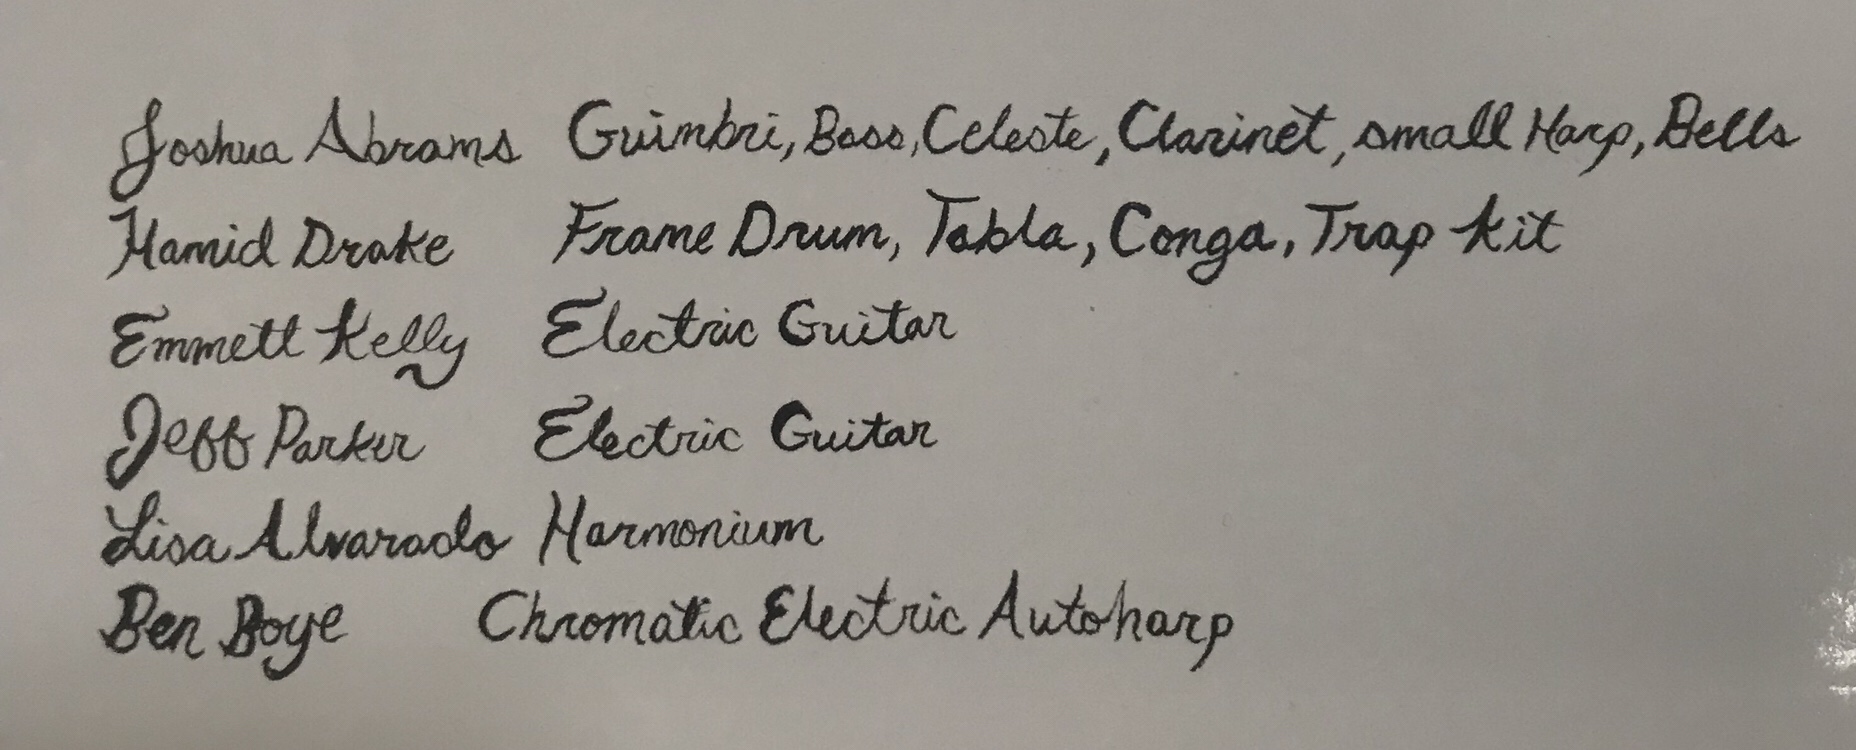 Joshua Abrams Guimbri, Bass, Celeste, Clarinet, small Harp, Bells
Hamid Drake Frame Drum, Tabla, Conga, Trap kit
Emmett Kelly Electric Guitar
Jeff Parker Electric Guitar
Lisa Alvarado Harmonium
Ben Boye Chromatic Electric Autoharp